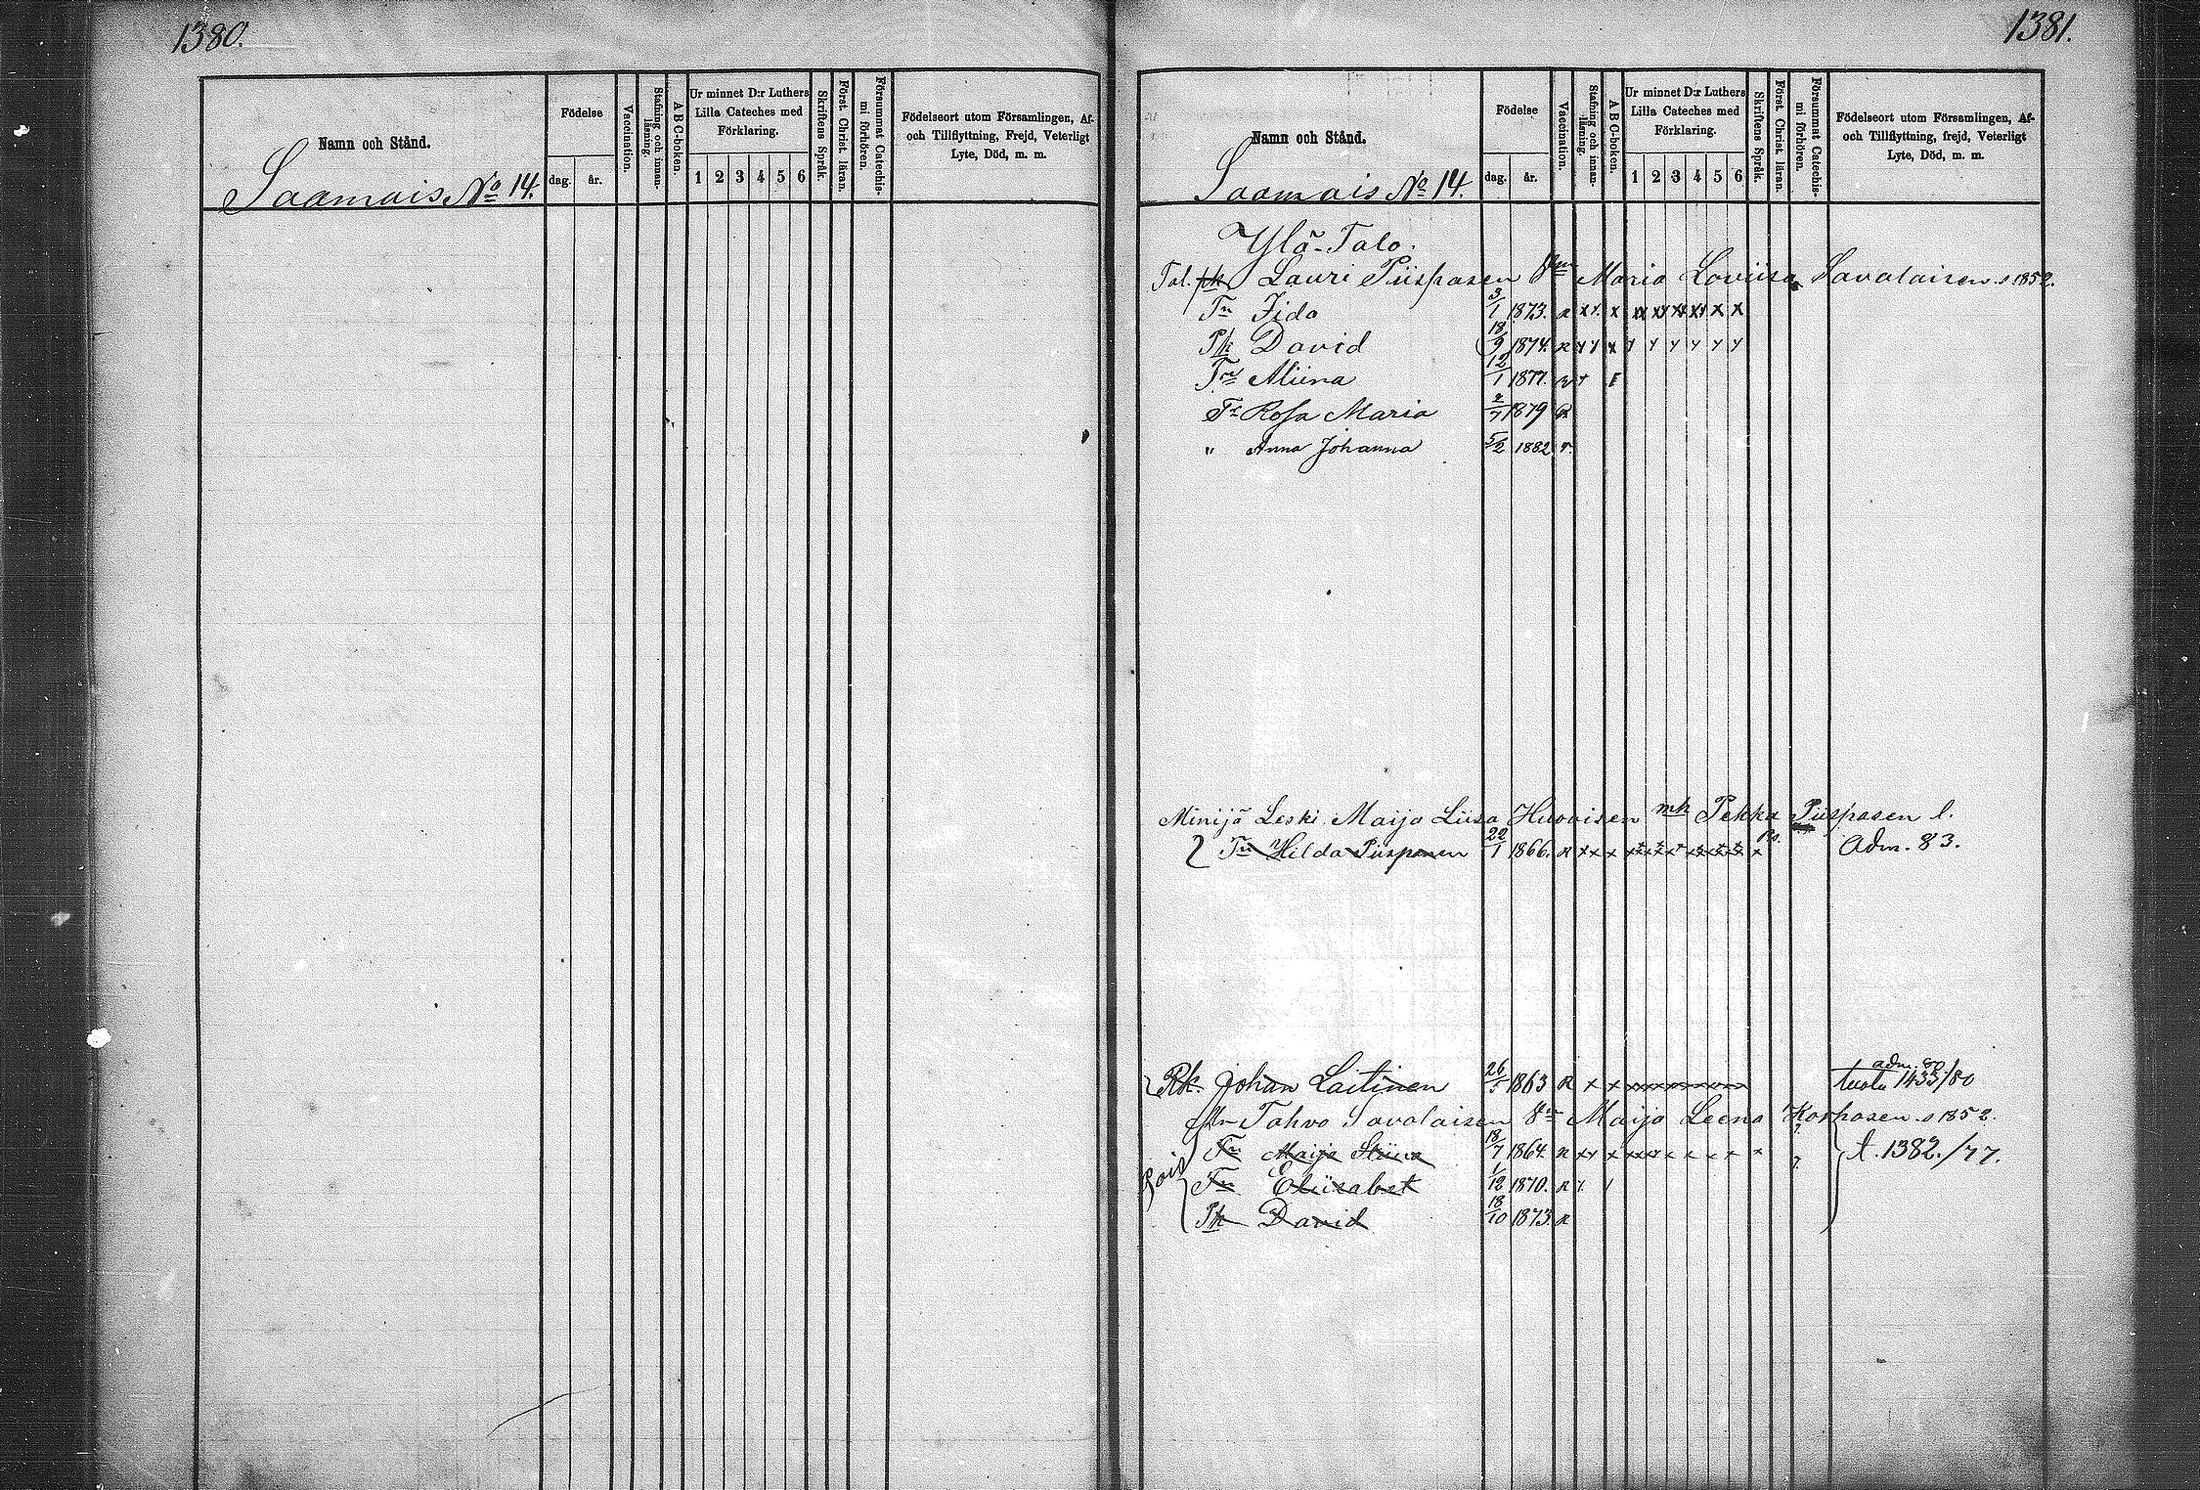 1380.
Namn och Stånd.
Saamais No 14.
Födelse
dag. år.
Vaccination.
Stafning och innan-läsning.
A B C-boken.
Ur minnet D:r Luthers
Lilla Cateches med
Förklaring.
1 2 3 4 5 6
Skriftens Språk.
Först. Christ. läran.
Försummat Catechis-mi förhören.
Födelseort utom Församlingen, Af-
och Tillflyttning, Frejd, Veterligt
Lyte, Död, m. m.
1381.
Namn och Stånd.
Saamais No 14.
Födelse
dag. år.
Vaccination.
Stafning och innan-läsning.
A B C-boken.
Ur minnet D:r Luthers
Lilla Cateches med
Förklaring.
1 2 3 4 5 6
Skriftens Språk.
Först. Christ. läran.
Försummat Catechis-mi förhören.
Födelseort utom Församlingen, Af-
och Tillflyttning, frejd, Veterligt
Lyte, Död, m. m.
Ylä-Talo.
Tal. pk Lauri Piispasen Vm Maria Loviisa Savalaisen s 1852.
Tr Iida 3/1 1873.
Pk David 18/9 1874.
Tr Miina 12/1 1877.
Tr Rosa Maria 2/7 1879
" Anna Johanna 5/2 1882
Minijä Leski Maija Liisa Hilovisen mh Pekka Piispasen l.
Tr Hilda Piispanen 22/1 1866. Adm. 83.
Rk. Johan Laitinen 26/5 1863 adm. 80
tuolu 1433/80
Tahvo Savalaisen Vm Maija Leena Korhosen s 1852.
Pois
Tr Maija Stiina 18/7 1864. t. 1382./77.
Tr Eliisabet 1/12 1870.
Pk David 18/10 1873.